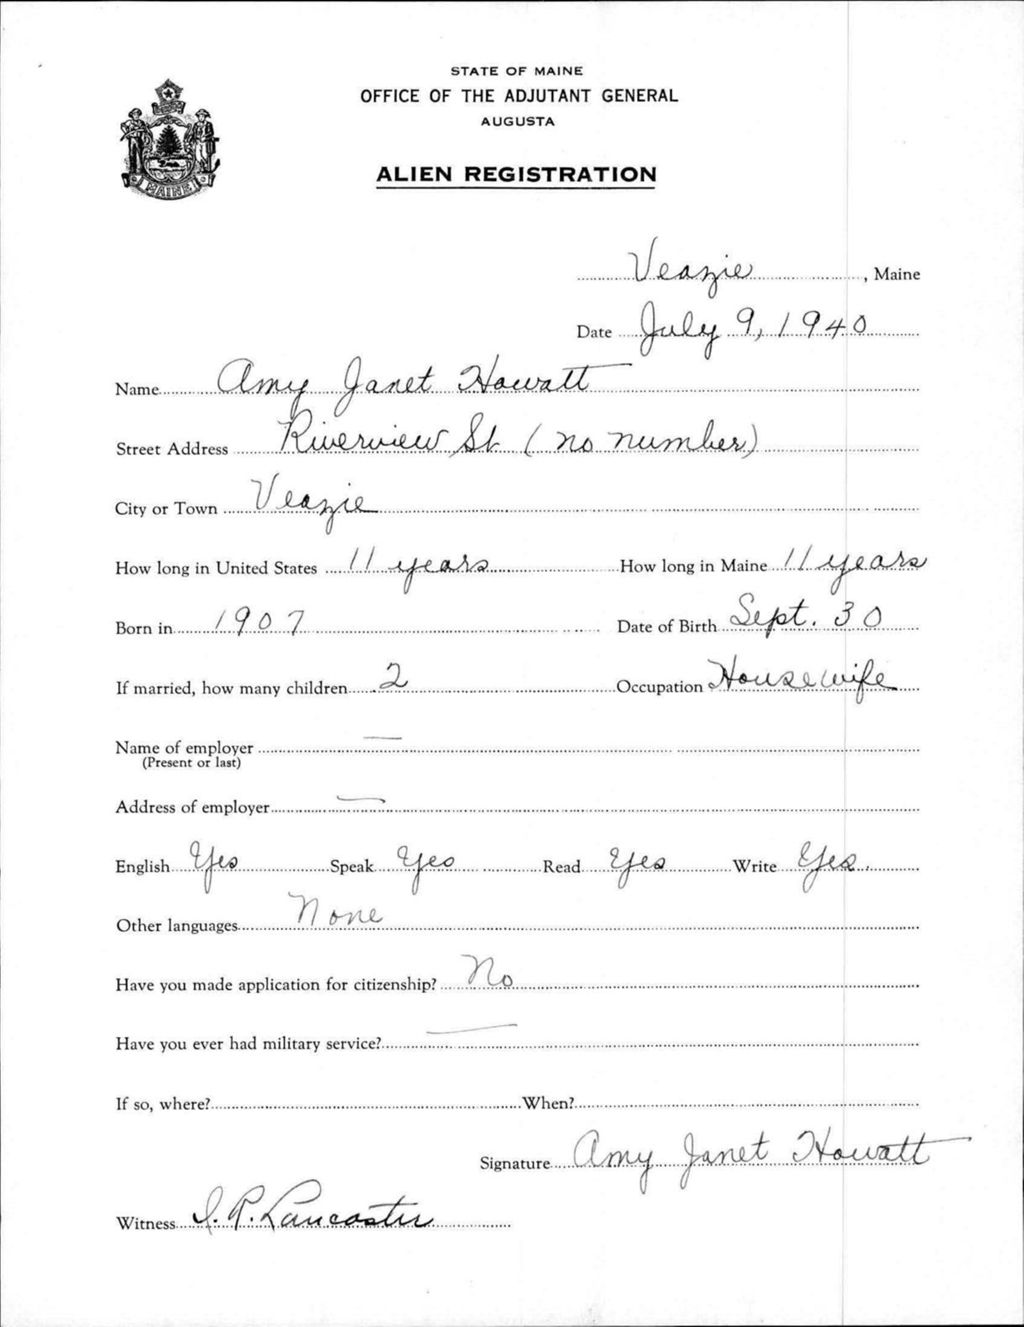 STATE OF MAINE
OFFICE OF THE ADJUTANT GENERAL
AUGUSTA
ALIEN REGISTRATION
MAINE
Veazie, Maine
Date July 9, 1940
Name Amy Janet Howatt
Street Address Riverview St. (no number)
City or Town Veazie
How long in United States 11 years How long in Maine 11 years
Born in 1907 Date of Birth Sept. 30
If married, how many children 2 Occupation Housewife
Name of employer —
(Present or last)
Address of employer —
English Yes Speak Yes Read Yes Write Yes.
Other languages None
Have you made application for citizenship? No
Have you ever had military service? —
If so, where? When?
Signature Amy Janet Howatt
Witness R. Lancaster